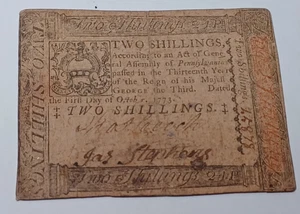 Two Shillings
TWO SHILLINGS
TWO SHILLINGS,
According to an Act of Gene-
ral Assembly of Pennsylvania
passed in the Thirteenth Year
of the Reign of his Majesty
GEORGE the Third. Dated
the First Day of Octob. 1773.
TWO SHILLINGS.
Jas Stephens
Two Shillings